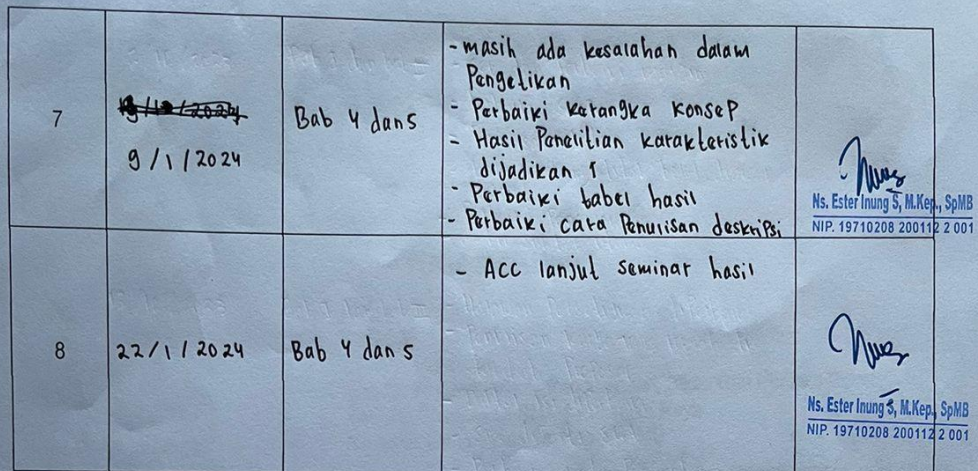 7
9/1/2024
Bab 4 dan 5
- masih ada kesalahan dalam
Pengetikan
- Perbaiki kerangka konsep
- Hasil Penelitian karakteristik
dijadikan 1
- Perbaiki tabel hasil
- Perbaiki cara Penulisan deskripsi
Ns. Ester Inung S, M.Kep., SpMB
NIP. 19710208 200112 2 001
8
22/1/2024
Bab 4 dan 5
- ACC lanjut seminar hasil
Ns. Ester Inung S, M.Kep., SpMB
NIP. 19710208 200112 2 001